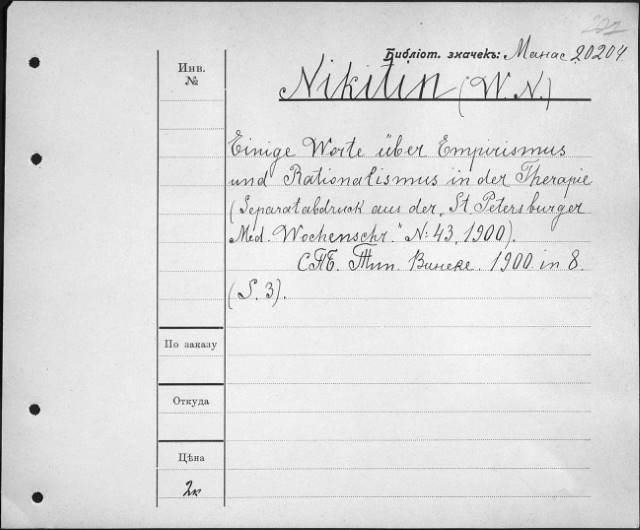 Библіот. значекъ: Манас. 20204
Инв.
№
Nikitin (W. N.)
Einige Worte über Empirismus
und Rationalismus in der Therapie
(Separatabdruck aus der „St. Petersburger
Med. Wochenschr." №: 43, 1900).
СПБ. Тип. Винеке. 1900. in 8.
(S. 3).
По заказу
Откуда
Цѣна
2к